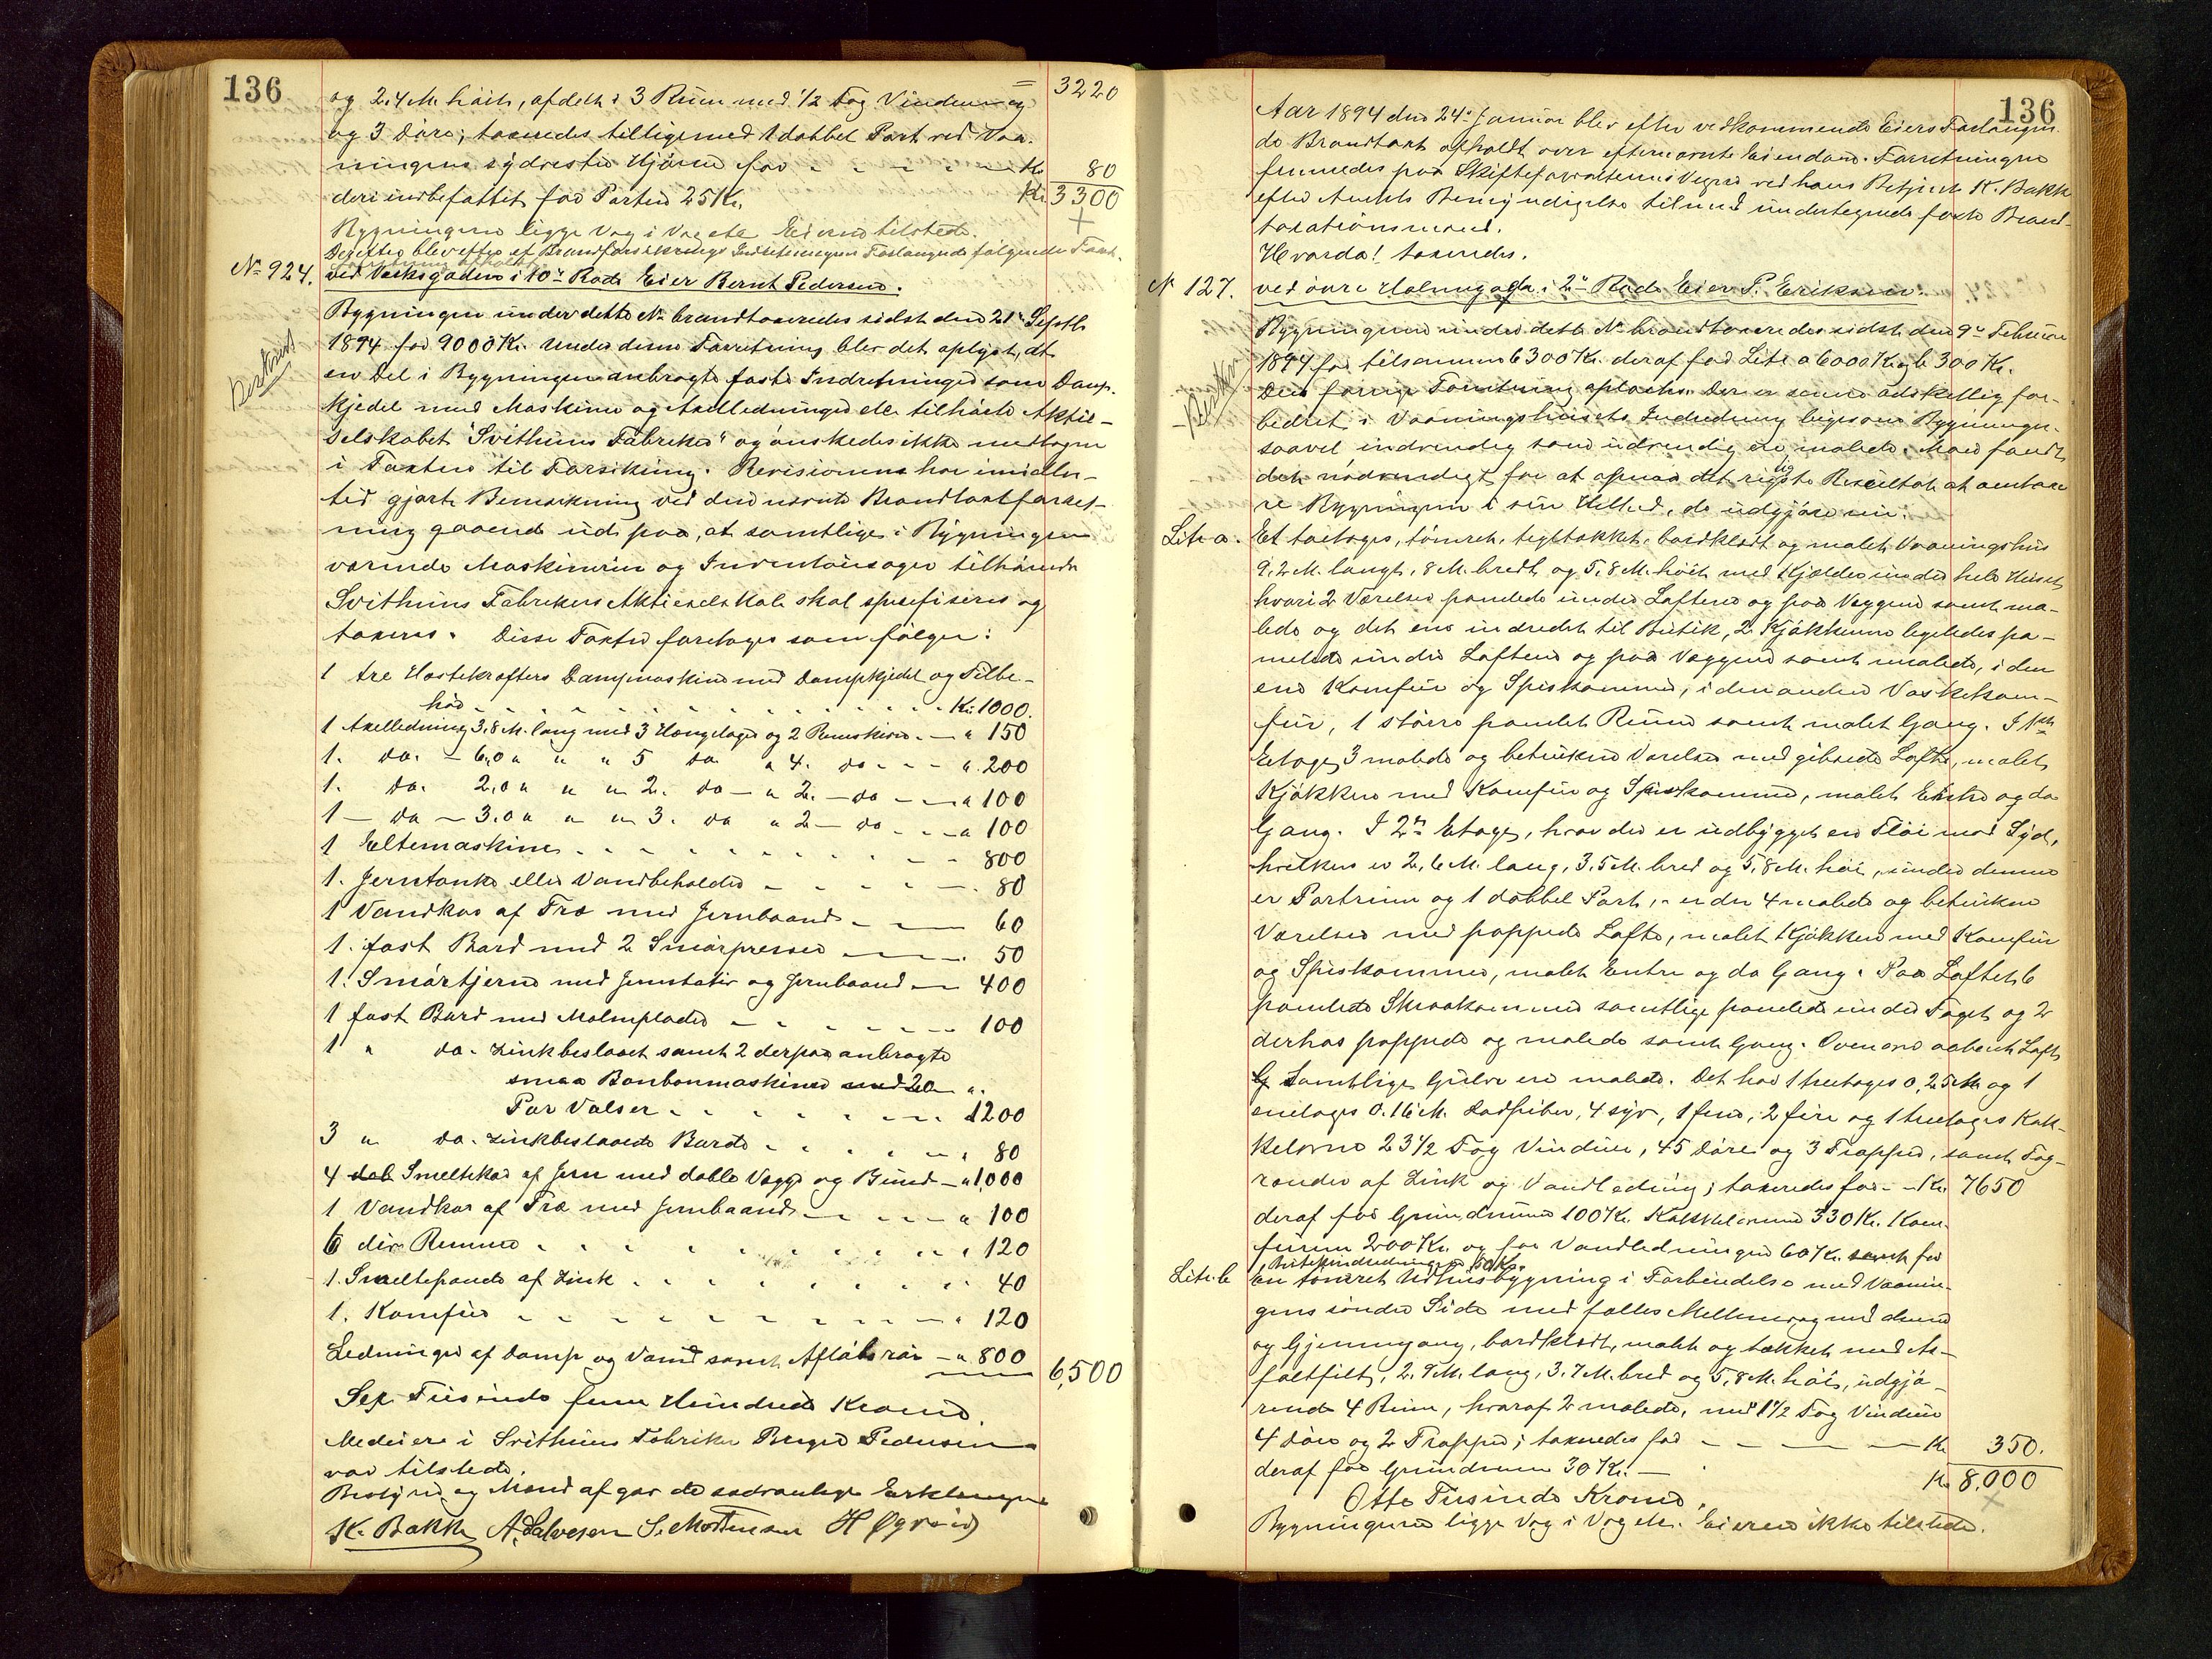 136
og 2.4 M. høit, afdelt i 3 Rum med 1/2 Fag Vinduer og = 3220
og 3 Døre; taxeredes tilligemed 1 dobbel Port ved Vaa-
ningens sydvestre Hjørne for - - - - Kr. 80
deri indbefattet for Porten 25 Kr. Kr. 3300
Bygningerne ligge Væg i Væg etc. Eieren tilstede.
Derefter blev efter Brandforsikrings Indretningens Forlangende følgende Taxt-
forretning afholdt
No 924. ved Verksgaden i 10de Rode Eier Bernt Pedersen.
Bygningen under dette No brandtaxeredes sidst den 21de Septb.
1894 for 9000 Kr. Under denne Forretning blev det oplyst, at
Beskrevet
en Del i Bygningen anbragte faste Indretninger som Damp-
kjedel med Maskine og Axelledninger etc. tilhørte Aktie-
selskabet "Svithuns Fabriker" og ønskedes ikke medtagne
i Taxten til Forsikring. Revisionen har imidler-
tid gjort Bemærkning ved den nævnte Brandtaxtforret-
ning gaaende ud paa, at samtlige i Bygningen
værende Maskinerier og Inventarsager tilhørende
Svithuns Fabrikers Aktieselskab skal spesifiseres og
taxeres. Disse Taxter foretages som følger:
1 tre Hestekræfters Dampmaskine med Dampkjedel og Tilbe-
hør - - - - - - Kr. 1000.
1 Axelledning 3.8 M. lang med 3 Hængelager og 2 Remskiver - " 150
1. do. - 6.0 " " " 5 do. " 4. do - - - " 200
1. do. 2.0 " " " 2. do - " 2. - do - - " 100
1 - do - 3.0 " " " 3. do " 2 - do - - " 100
1 Æltemaskine - - - - - - 800
1. Jerntank eller Vandbeholder - - - - - 80
1 Vandkar af Træ med Jernbaand - - - 60
1. fast Bord med 2 Smørpresser - - - 50
1. Smørtjerne med Jernstativ og Jernbaand - - 400
1 fast Bord med Malmplader - - - - - 100
1 " do. Zinkbeslaaet samt 2 derpaa anbragte
smaa Bonbonmaskiner med 20 "
Par Valser - - - - - - 1200
3 " do. Zinkbeslaaede Borde - - - - - " 80
4 dob Smeltekar af Jern med doble Vægge og Bund - " 1,000
1 Vandkar af Træ med Jernbaand - - - - " 100
6 div. Remme - - - - - - - " 120
1. Smeltepande af Zink - - - - - - 40
1. Komfur - - - - - - - " 120
Ledninger af Damp og Vand samt Afløbsrør - " 800 6,500
Sex Tusinde fem Hundrede Kroner.
Medeiere i Svithuns Fabriker Berger Pedersen
var tilstede.
Bestyrer og Mænd afgav de sædvanlige Erklæringer
K. Bakke A. Salvesen S. Mortensen H Øgreid
136
Aar 1894 den 24de Januar blev efter vedkommende Eiers Forlangen-
de Brandtaxt afholdt over efternævnte Eiendom. Forretningen
fremmedes paa Skifteforvalterens Vegne ved hans Betjent K. Bakke
efter Amtets Bemyndigelse tilmed undertegnede faste Brand-
taxationsmænd.
Hvorda! taxeredes.
No 127. ved øvre Holmegade i 2den Rode Eier P. Eriksen.
Bygningerne under dette No brandtaxeredes sidst den 9de Februar
1894 for tilsammen 6300 Kr. deraf for Litr. a 6000 Kr. og b 300 Kr.
Beskrevet
Den forrige Forretning oplæstes. Der er senere adskillig for-
bedret i Vaaningshusets Indredning ligesom Bygningen
saavel indvendig som udvendig ere malede. Man fandt
det nødvendigt for at opnaa det rigtige Resultat at omtaxe-
re Bygningen i sin Helhed, de udgjøre nu:
Litr. a. Et toetages, tømret, tegltækket, bordklædt og malet Vaaningshus
9.2 M. langt, 8 M. bredt og 5.8 M. høit med Kjælder under hele Huset
hvori 2 Værelser panelede under Loftene og paa Væggene samt ma-
lede og det ene indredet til Butik, 2 Kjøkkener ligeledes pa-
nelede under Loftene og paa Væggene samt malede, i den
ene Komfur og Spiskammer, i den anden Vaskekom-
fur, 1 større panelet Rum samt malet Gang. I 1ste
Etage 3 malede og betrukne Værelser med gibsede Lofte, malet
Kjøkken med Komfur og Spiskammer, malet Entre og do
Gang. I 2den Etage, hvor der er udbygget en Fløi mod Syd,
hvilken er 2.6 M. lang, 3.5 M. bred og 5.8 M. høi, under denne
er Portrum og 1 dobbel Port, - er der 4 malede og betrukne
Værelser med pappede Lofte, malet Kjøkken med Komfur
og Spiskammer, malet Entre og do Gang. Paa Loftet 6
panelede Skraakammer samtlige panelede under Taget og 2
derhos pappede og malede samt Gang. Ovenover aabent Loft
Samtlige Gulve ere malede. Det har 1 treetages 0.25 M og 1
enetages 0.16 M. Ladpiber, 4 syv, 1 fem, 2 fire og 1 treetages Kak-
kelovne 23 1/2 Fag Vinduer, 45 Døre og 3 Trapper, samt Tag-
render af Zink og Vandledning; taxeredes for - - Kr. 7650
deraf for Grundmuren 100 Kr. Kakkelovnene 330 Kr. Kom-
furene 200 Kr. og for Vandledningen 60 Kr. samt for
Butikindredningen 50 Kr.
Litr. b En tømret Udhusbygning i Forbindelse med Vaanin-
gens søndre Side med fælles Mellemvæg med denne
og Gjennemgang, bordklædt, malt og tækket med As-
faltfilt, 2.9 M. lang, 3.7 M. bred og 5.8 M. høi, udgjø-
rende 4 Rum, hvoraf 2 malede, med 1 1/2 Fag Vinduer
4 Døre og 2 Trapper; taxeredes for - - - - Kr. 350.
deraf for Grundmuren 30 Kr. - Kr. 8,000
Otte Tusinde Kroner.
Bygningerne ligge Væg i Væg etc. Eieren ikke tilstede.